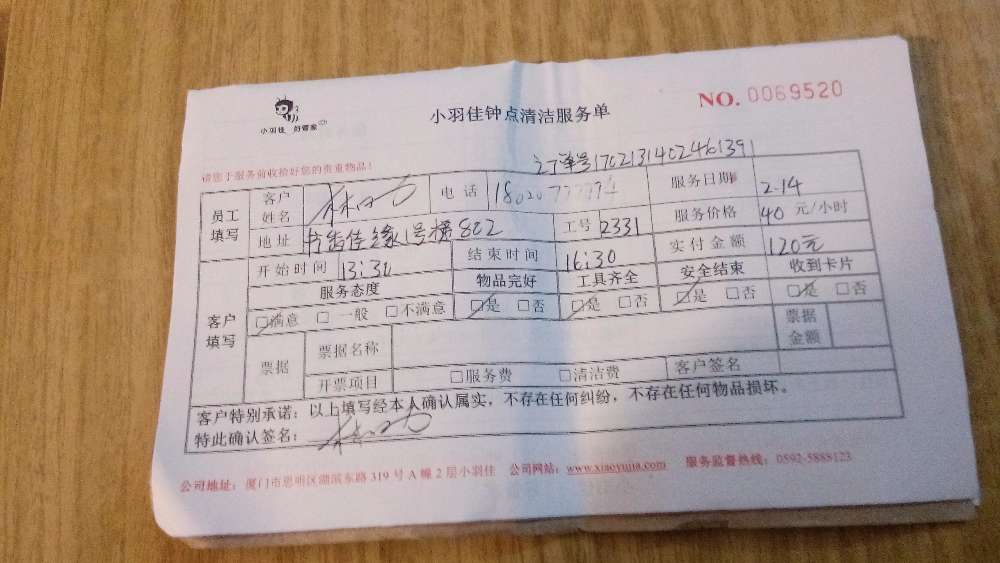 小羽佳 好管家
小羽佳钟点清洁服务单
NO. 0069520
请您于服务前收拾好您的贵重物品！
订单号1702131402461391
员工填写 客户姓名 电话 服务日期 2.14
地址 书香佳缘1号楼802 工号 2331 服务价格 40 元/小时
客户填写 开始时间 13:30 结束时间 16:30 实付金额 120元
服务态度 物品完好 工具齐全 安全结束 收到卡片
□满意 □一般 □不满意 □是 □否 □是 □否 □是 □否 □是 □否
票据 票据名称 票据金额
开票项目 □服务费 □清洁费 客户签名
客户特别承诺：以上填写经本人确认属实，不存在任何纠纷，不存在任何物品损坏。
特此确认签名：
公司地址：厦门市思明区湖滨东路 319 号 A 幢 2 层小羽佳 公司网站：www.xiaoyujia.com 服务监督热线：0592-5888123